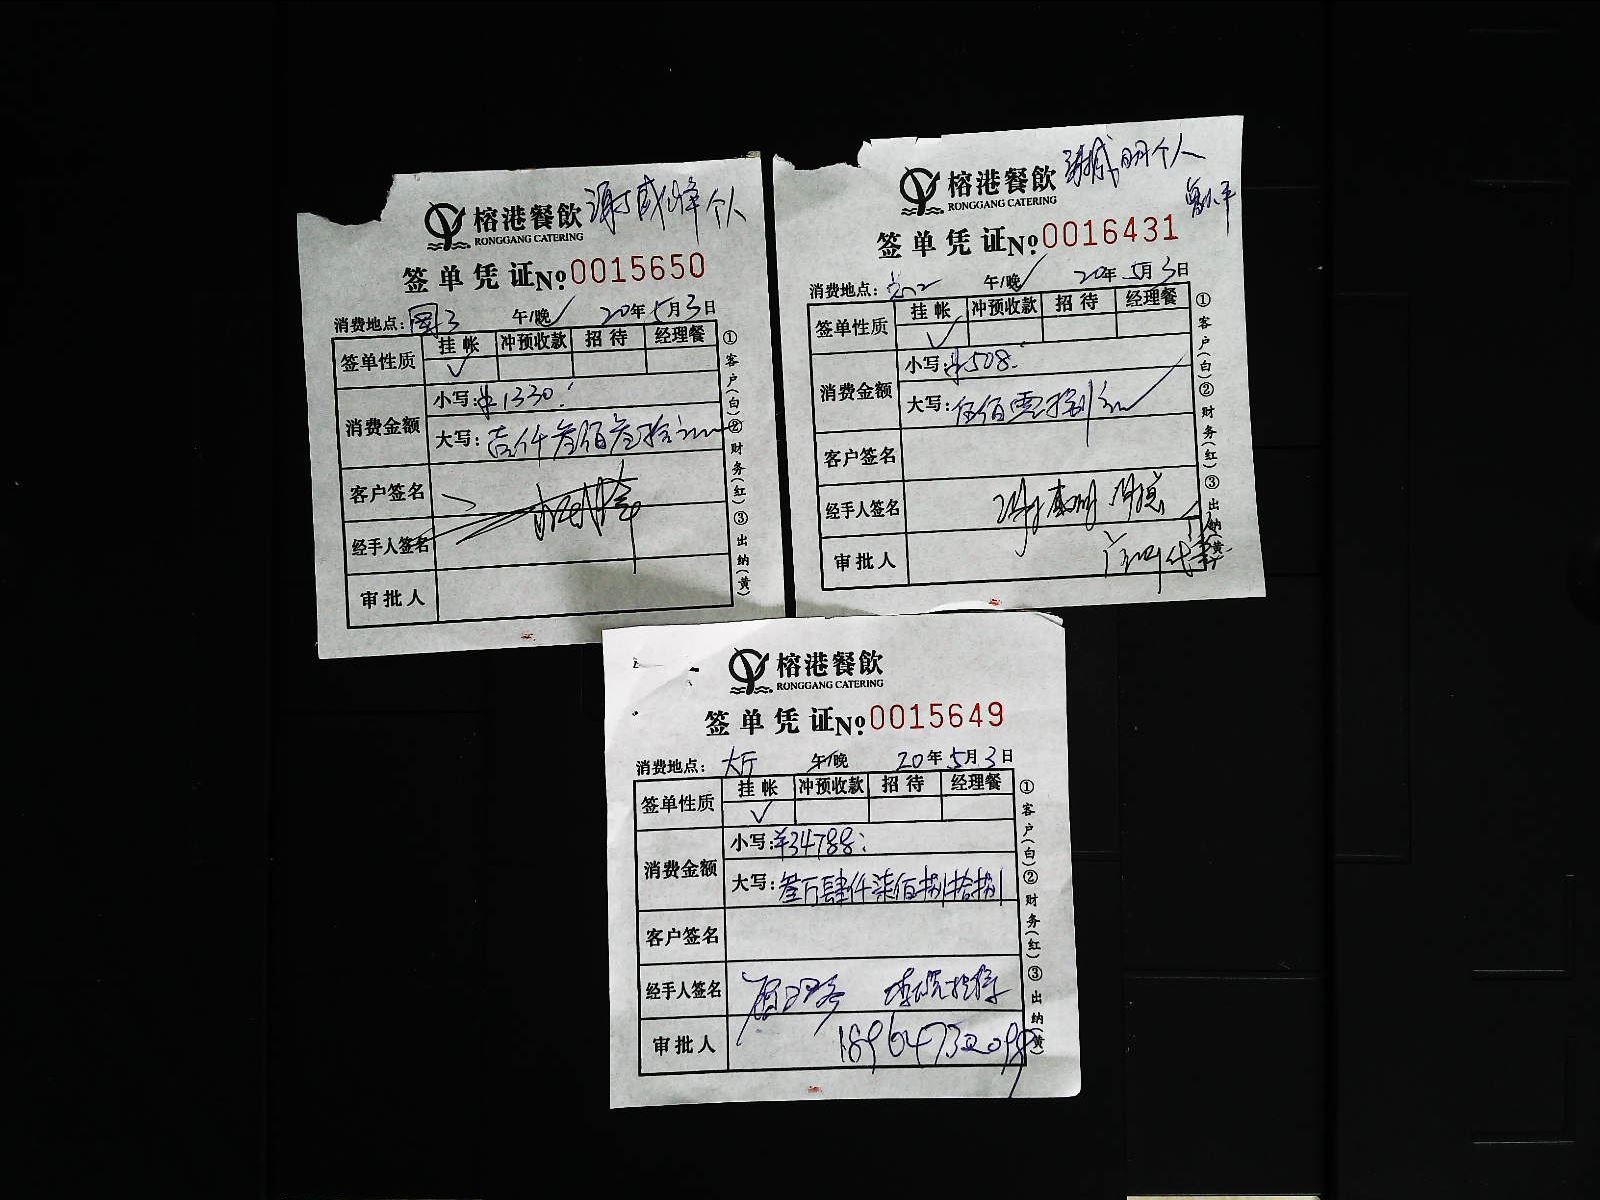 谢威峰个人
榕港餐飲
RONGGANG CATERING
签单凭证№0015650
消费地点: 3 午/晚 20年5月3日
签单性质 挂帐 冲预收款 招待 经理餐
✓
消费金额 小写:¥1330.
大写: 壹仟叁佰叁拾元
客户签名
经手人签名
审批人
①客户(白)②财务(红)③出纳(黄)
谢威明个人
榕港餐飲
RONGGANG CATERING
签单凭证№0016431
消费地点: 午/晚 20年5月3日
签单性质 挂帐 冲预收款 招待 经理餐
✓
消费金额 小写:¥508.
大写: 伍佰零捌元
客户签名
经手人签名
审批人
①客户(白)②财务(红)③出纳(黄)
榕港餐飲
RONGGANG CATERING
签单凭证№0015649
消费地点: 大厅 午/晚 20年5月3日
签单性质 挂帐 冲预收款 招待 经理餐
✓
消费金额 小写:¥34788.
大写: 叁万肆仟柒佰捌拾捌
客户签名
经手人签名
审批人
①客户(白)②财务(红)③出纳(黄)